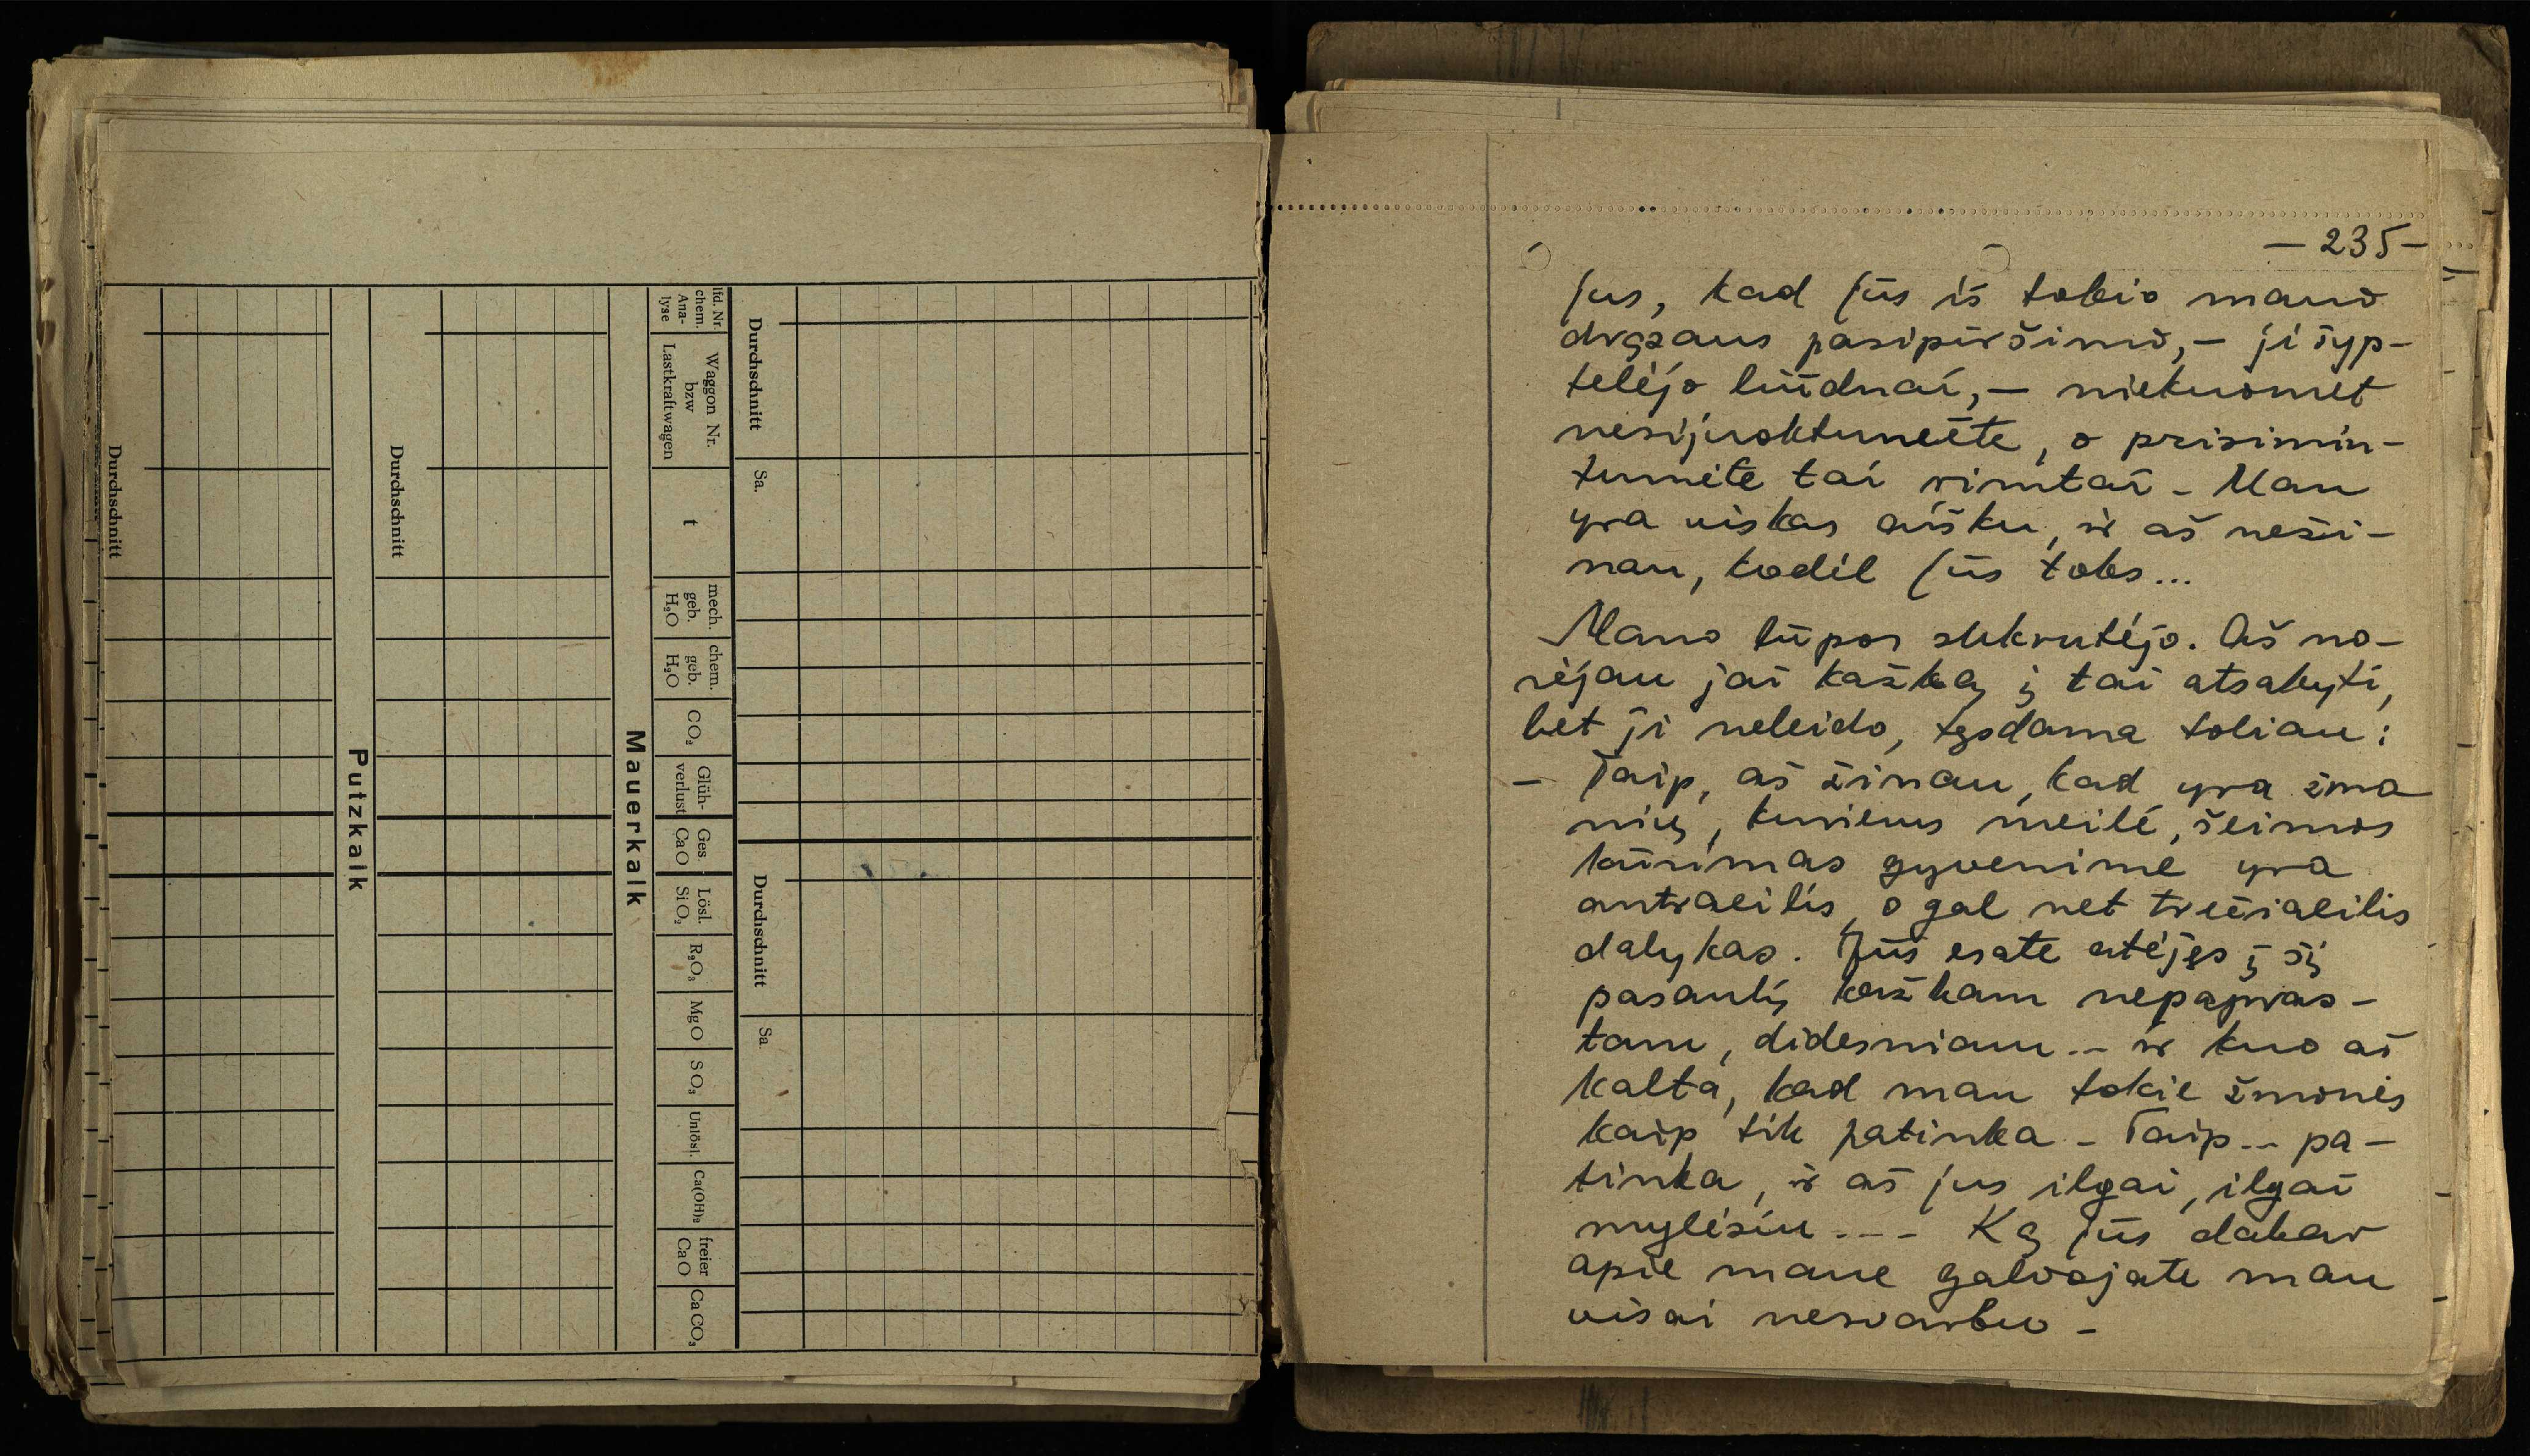 Durchschnitt
Sa.
Durchschnitt
Sa.
lfd. Nr.
chem.
Ana-
lyse
Waggon Nr.
bzw
Lastkraftwagen
t
mech.
geb.
H₂O
chem.
geb.
H₂O
CO₂
Glüh-
verlust
Ges.
CaO
Lösl.
SiO₂
R₂O₃
MgO
SO₃
Unlösl.
Ca(OH)₂
freier
CaO
CaCO₃
Mauerkalk
Durchschnitt
Putzkalk
Durchschnitt
— 235 —
jus, kad jūs iš tokio mano
drąsaus pasipiršimo, — ji šyp-
telėjo liūdnai, — niekuomet
nesijuoktumėte, o prisimin-
tumėte tai rimtai - Man
yra viskas aišku, ir aš neži-
nau, kodėl jūs toks...
Mano lūpos sukrutėjo. Aš no-
rėjau jai kažką į tai atsakyti,
bet ji neleido, tęsdama toliau:
— Taip, aš žinau, kad yra žmo
nių, kuriems meilė, šeimos
kūrimas gyvenime yra
antraeilis, o gal net trečiaeilis
dalykas. Jūs esate atėjęs į šį
pasaulį kažkam nepapras-
tam, didesniam -- ir kuo aš
kalta, kad man tokie žmonės
kaip tik patinka - Taip -- pa-
tinka, ir aš jus ilgai, ilgai
mylėsiu --- Ką jūs dabar
apie mane galvojate man
visai nesvarbu -